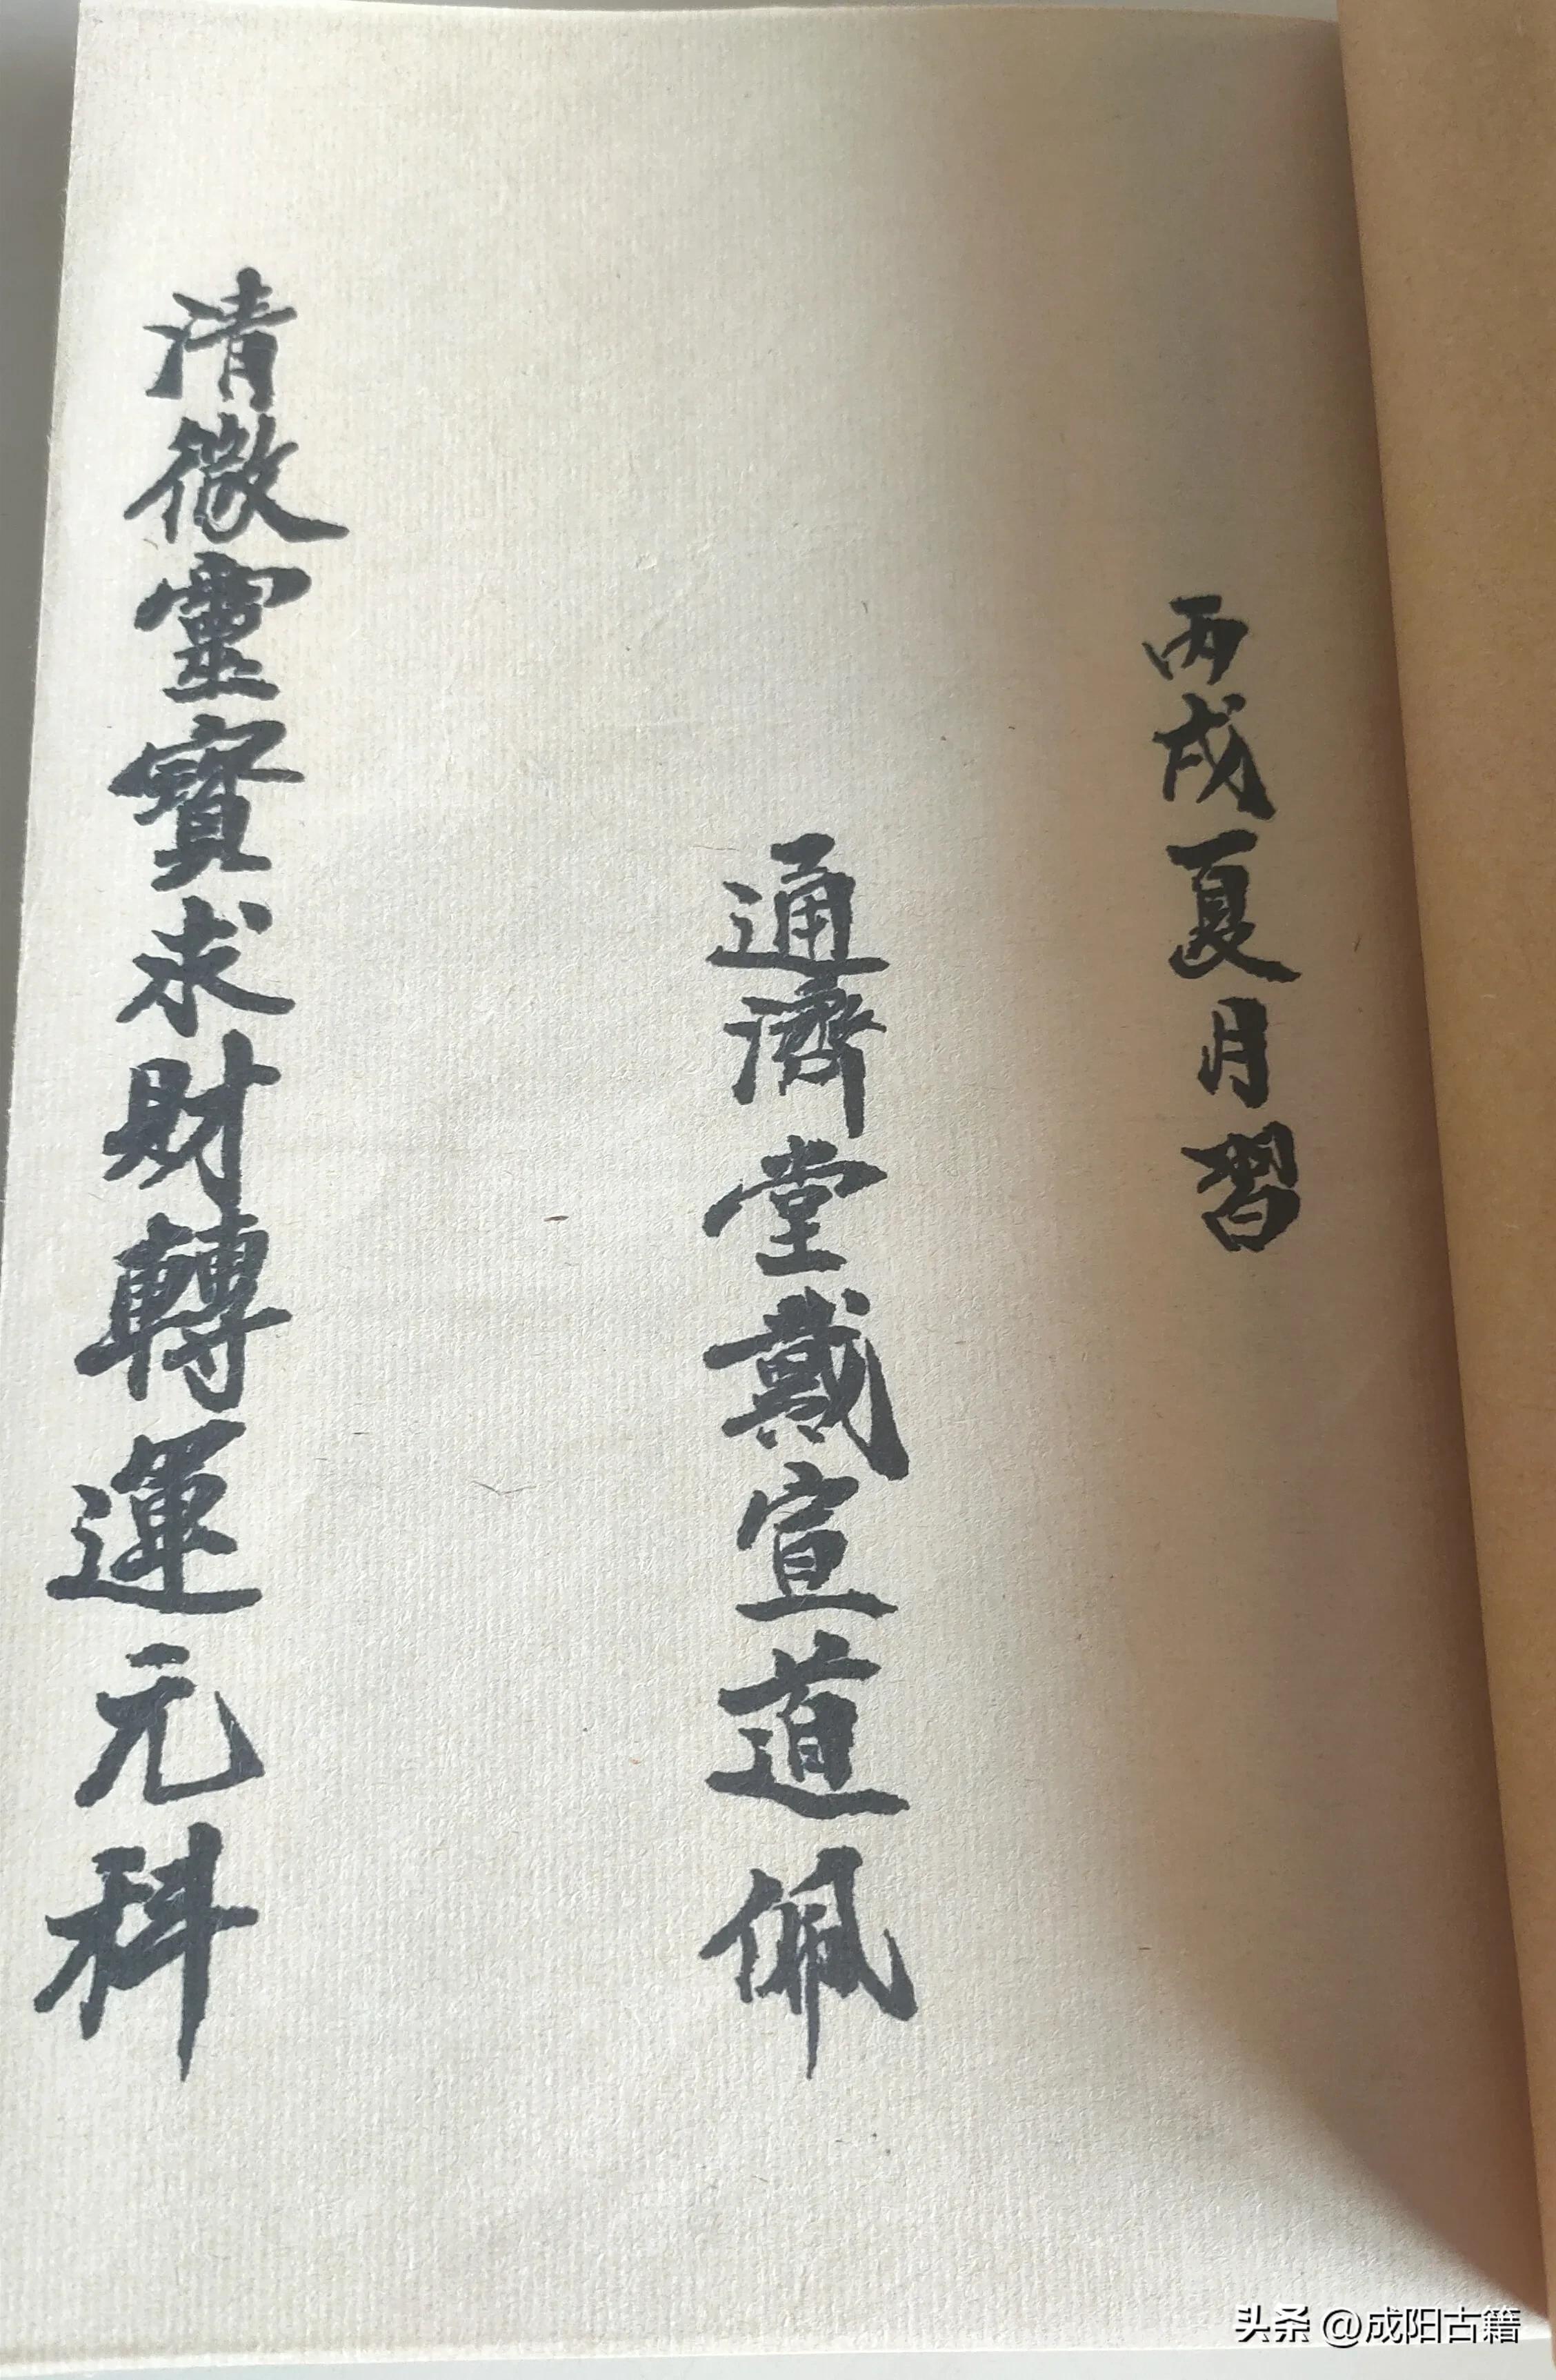 丙戌夏月習
通濟堂戴宣道佩
清微靈寶求財轉運元科
头条 @成阳古籍